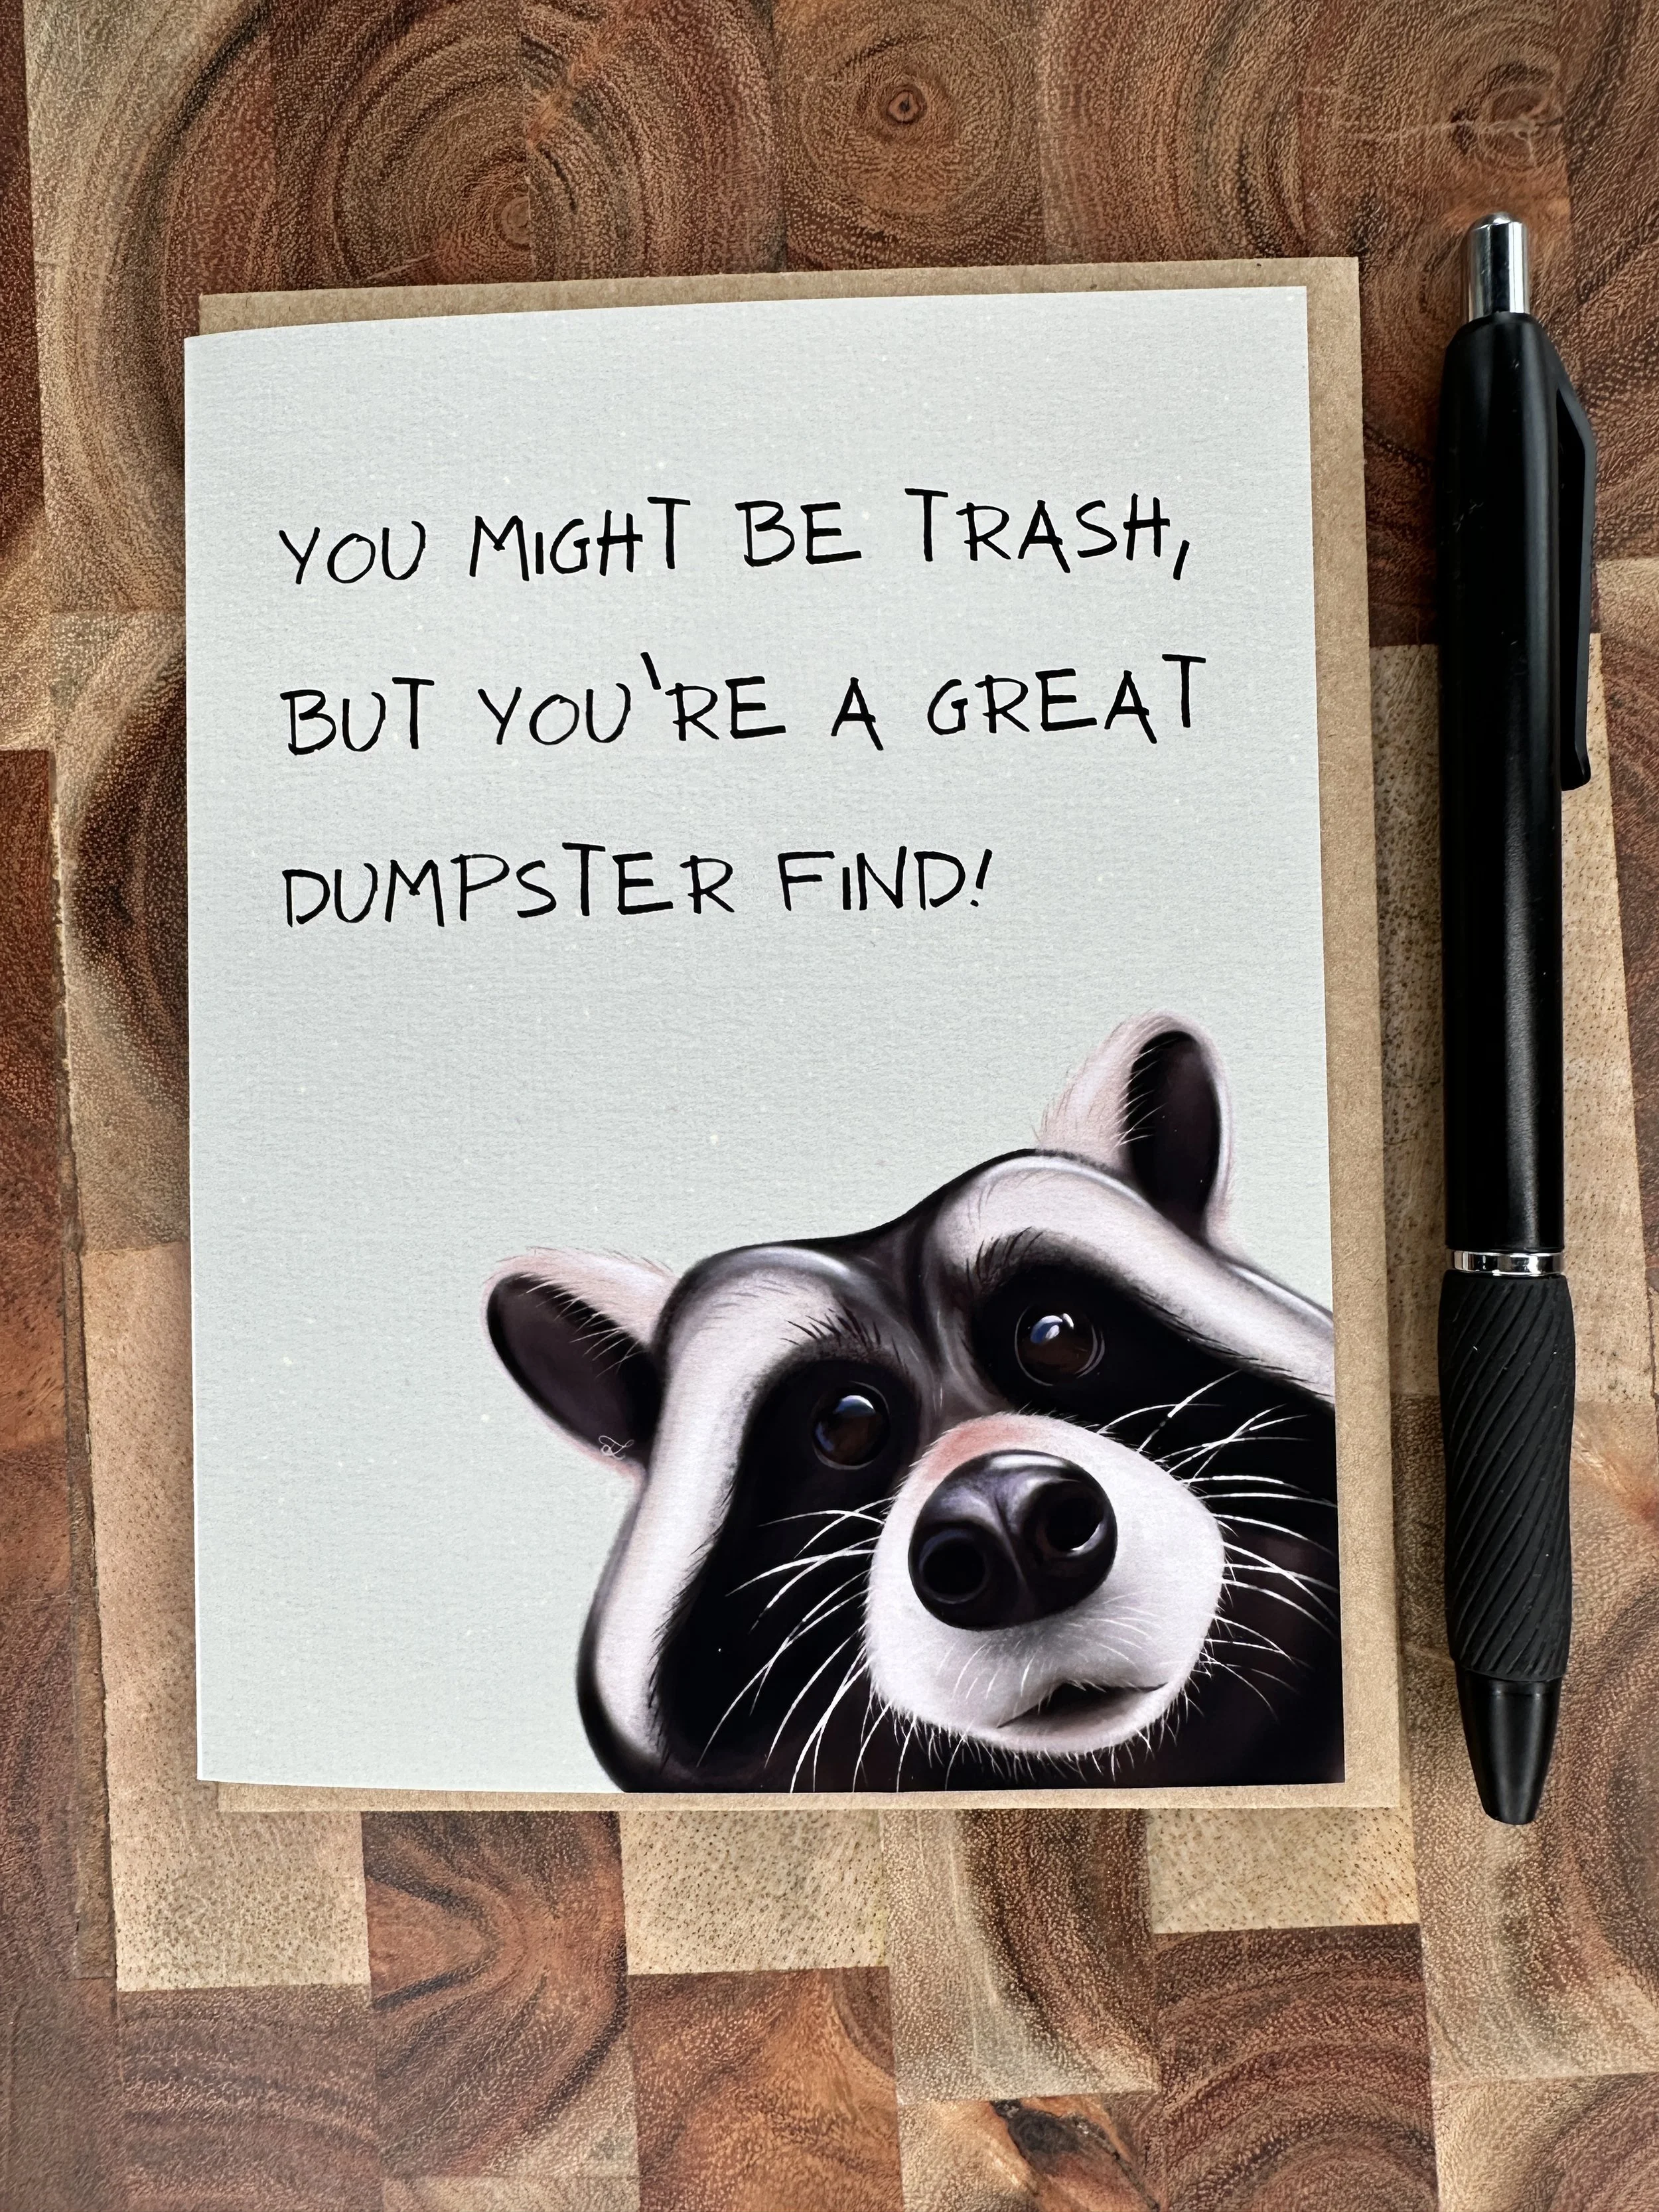 YOU MIGHT BE TRASH,
BUT YOU'RE A GREAT
DUMPSTER FIND!